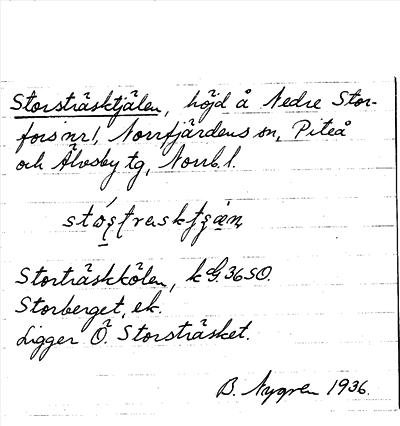 Storsträsktjälen, höjd å Nedre Stor-
fors nr 1, Norrfjärdens sn, Piteå
och Älvsby tg, Norrb. l.
Storträskkölen, k G. 36 SO.
Storberget, ek.
Ligger Ö. Storsträsket.
B. Nygren 1936.